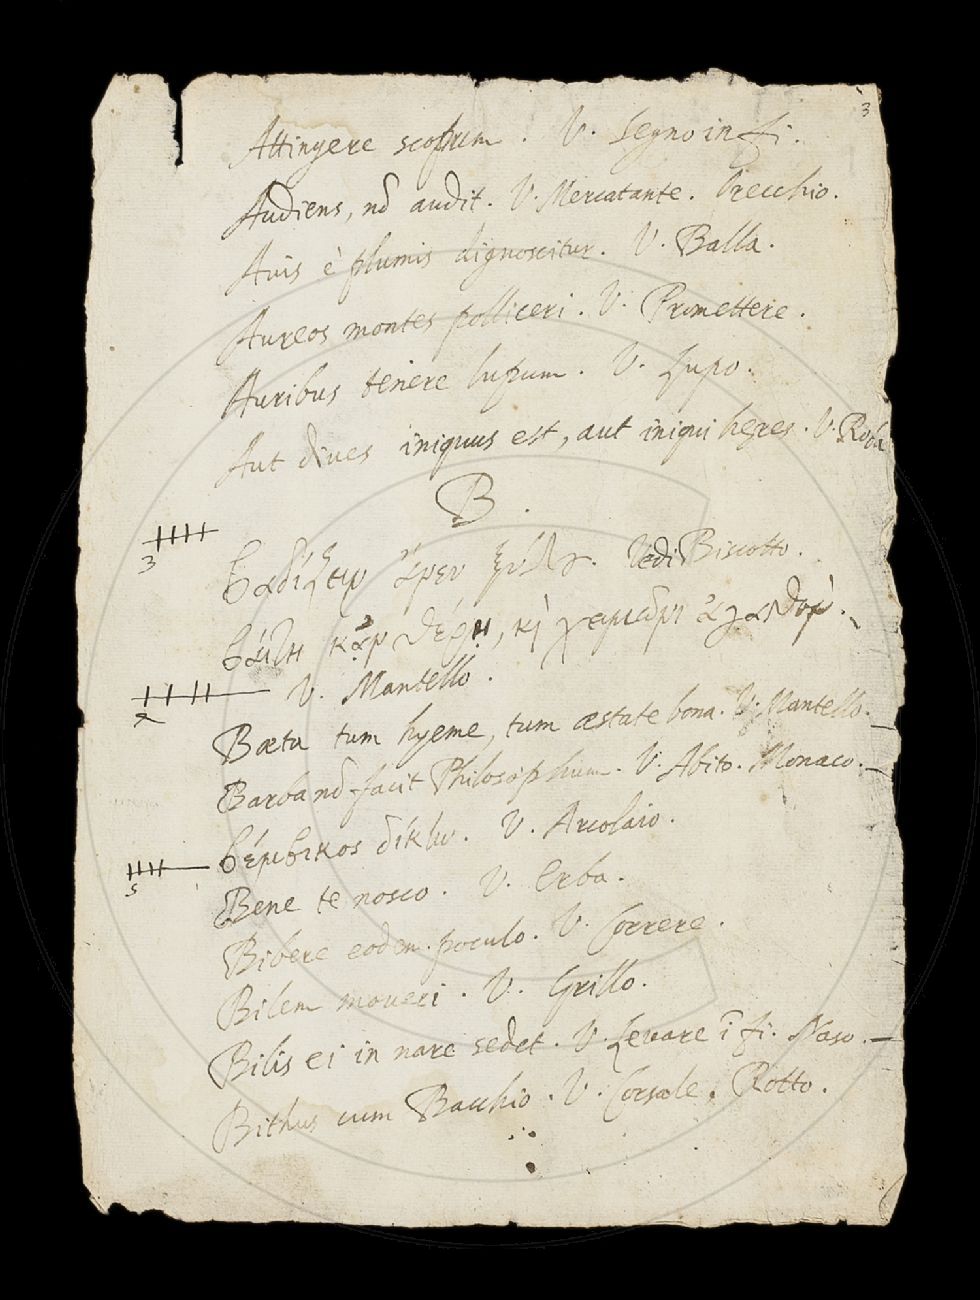 3
Attingere scopum. V. Segno in fi.
Audiens, nō audit. V. Mercatante. Orecchio.
Auis è plumis dignoscitur. V. Balla.
Aureos montes polliceri. V. Promettere.
Auribus tenere lupum. V. Lupo.
Aut diues iniquus est, aut iniqui heres. V. Roba
B.
3 βαδίζειν ἄνευ ξύλου. Vedi Biscotto.
βαίτη κἀν θέρει, κὴ χειμῶνι ἀγαθόν.
2 V. Mantello.
Bæta tum hyeme, tum æstate bona. V. Mantello.
Barba nō facit Philosophum. V. Abito. Monaco.
5 βέμβικος δίκην. V. Arcolaio.
Bene te nosco. V. Erba.
Bibere eodem poculo. V. Correre.
Bilem moueri. V. Grillo.
Bilis ei in nare sedet. V. Leuare ī fi. Naso.
Bithus cum Bacchio. V. Corsale. Rotto.